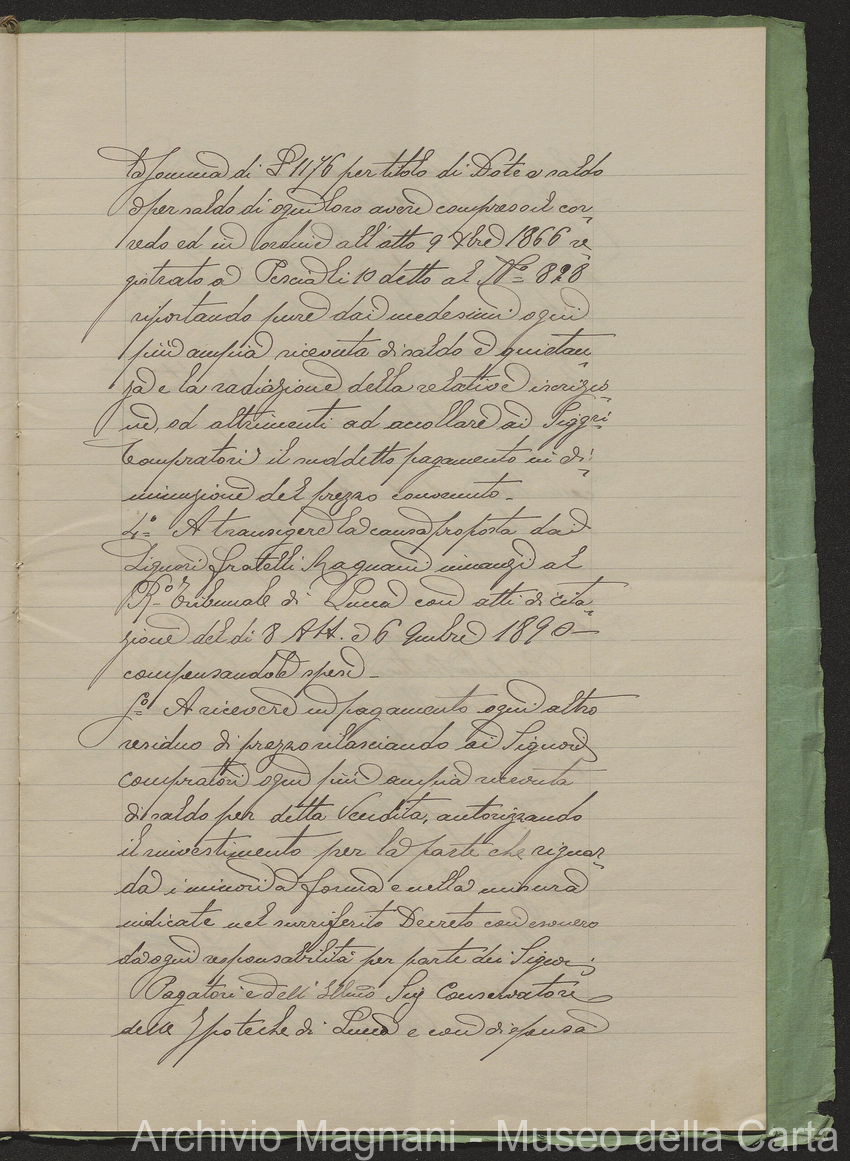 la somma di £ 1176 per titolo di Dote a saldo
e per saldo di ogni loro avere compreso il cor=
redo ed in ordine all'atto 9 Xbre 1866 re=
gistrato a Pescia li 10 detto al N.o 828
riportando pure dai medesimi ogni
più ampia ricevuta di saldo e quietan=
za e la radiazione della relativa iscrizio=
ne, ed altrimenti ad accollare ai Sigg.ri
Compratori il suddetto pagamento in di=
minuzione del prezzo convenuto.
4.o A transigere la causa proposta dai
Signori fratelli Magnani innanzi al
R.o Tribunale di Lucca con atti di cita=
zione del di 8 Ott. e 6 9mbre 1890 —
compensando le spese.
5.o A ricevere in pagamento ogni altro
residuo di prezzo rilasciando ai Signori
compratori ogni più ampia ricevuta
di saldo per detta Vendita, autorizzando
il rinvestimento per la parte che riguar=
da i minori a forma e nella misura
indicate nel surriferito Decreto con esonero
da ogni responsabilità per parte dei Signori
Pagatori e dell' Illmo Sig Conservatore
delle Ipoteche di Lucca e con dispensa
Archivio Magnani - Museo della Carta